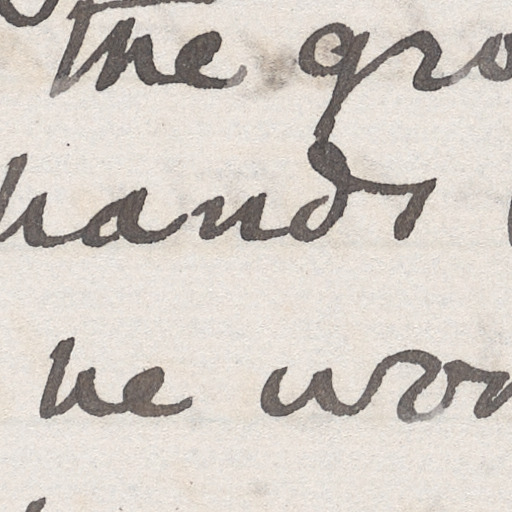 the gro
hands
he won